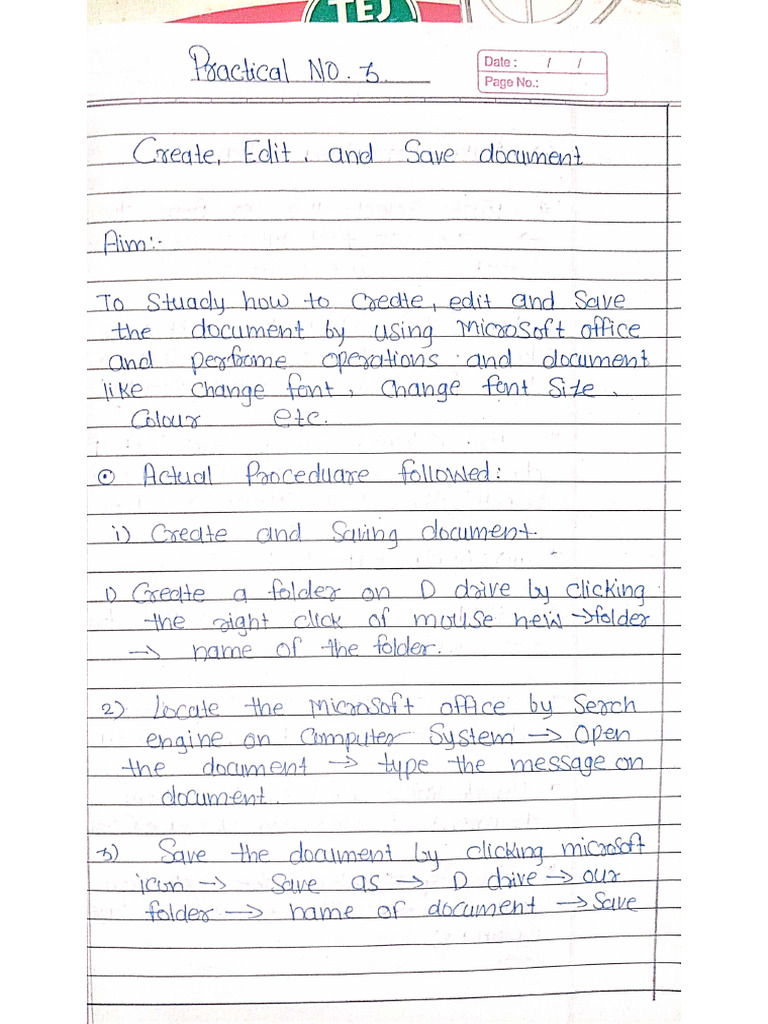 TEJ
Practical NO. 3.
Date : / /
Page No.:
Create, Edit, and Save document
Aim:-
To Stuady how to Create, edit and Save
the document by using Microsoft office
and perfrome operations and document
like change font, Change font Size,
Colour etc.
⊙ Actual Proceduare followed:
i) Create and Saving document.
1) Create a folder on D drive by clicking
the right click of mouse new → folder
→ name of the folder.
2) Locate the Microsoft office by Serch
engine on Computer System → Open
the document → type the message on
document.
3) Save the document by clicking microsoft
icon → Save as → D drive → our
folder → name of document → Save